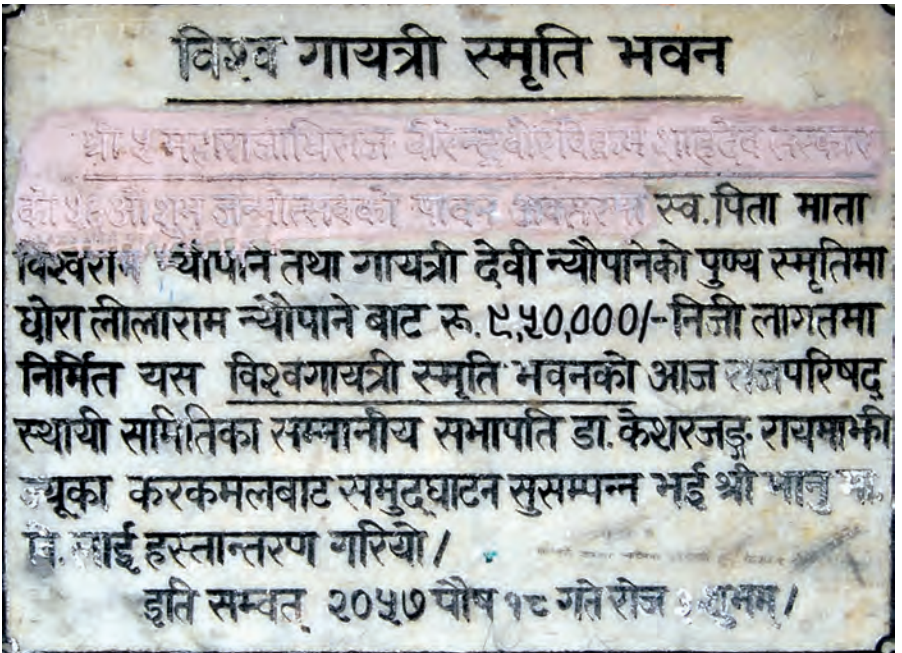 विश्व गायत्री स्मृति भवन
श्री ५ महाराजाधिराज वीरेन्द्र वीर विक्रम शाहदेव सरकार
को ५६ औं शुभ जन्मोत्सवको पावन अवसरमा स्व. पिता माता
विश्वराम न्यौपाने तथा गायत्री देवी न्यौपानेको पुण्य स्मृतिमा
छोरा लीलाराम न्यौपाने बाट रू. ९,५०,०००/- निजी लागतमा
निर्मित यस विश्वगायत्री स्मृति भवनको आज राजपरिषद्
स्थायी समितिका सम्मानीय सभापति डा. केशरजङ्ग रायमाझी
ज्यूका करकमलबाट समुद्घाटन सुसम्पन्न भई श्री भानु मा.
वि. लाई हस्तान्तरण गरियो।
इति सम्वत् २०५७ पौष १८ गते रोज शुभम्।